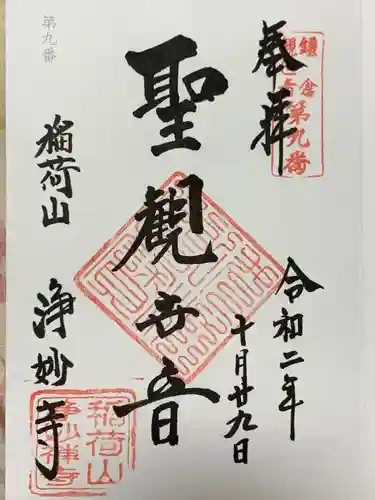 鎌倉
観世音
第九番
奉拝
令和二年
十月廿九日
聖觀世音
第九番
稲荷山
浄妙寺
稲荷山
浄妙禅寺